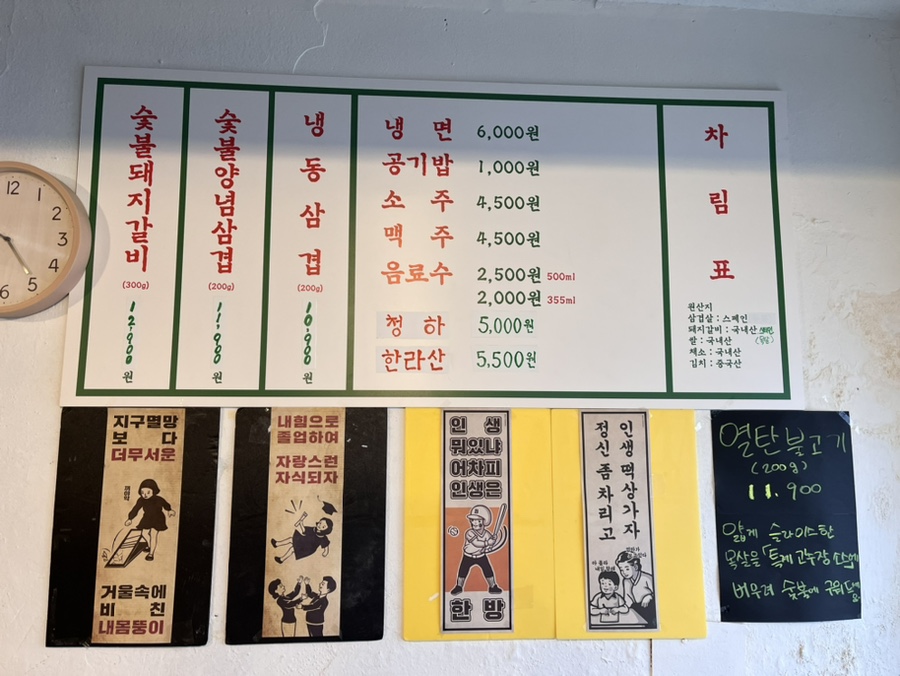 숯불돼지갈비
(300g)
12,900
원
숯불양념삼겹
(200g)
11,900
원
냉동삼겹
(200g)
10,900
원
냉면 6,000원
공기밥 1,000원
소주 4,500원
맥주 4,500원
음료수 2,500원 500ml
2,000원 355ml
청하 5,000원
한라산 5,500원
차림표
원산지
삼겹살 : 스페인
돼지갈비 : 국내산
쌀 : 국내산
채소 : 국내산
김치 : 중국산
12
1
2
3
4
5
6
지구멸망
보다
더무서운
거울속에
비친
내몸뚱이
내힘으로
졸업하여
자랑스런
자식되자
인생
뭐있냐
어차피
인생은
한방
인생 떡상가자
정신 좀 차리고
열탄불고기
(200g)
11.900
얇게 슬라이스한
목살을 특제 간장소스에
버무려 숯불에